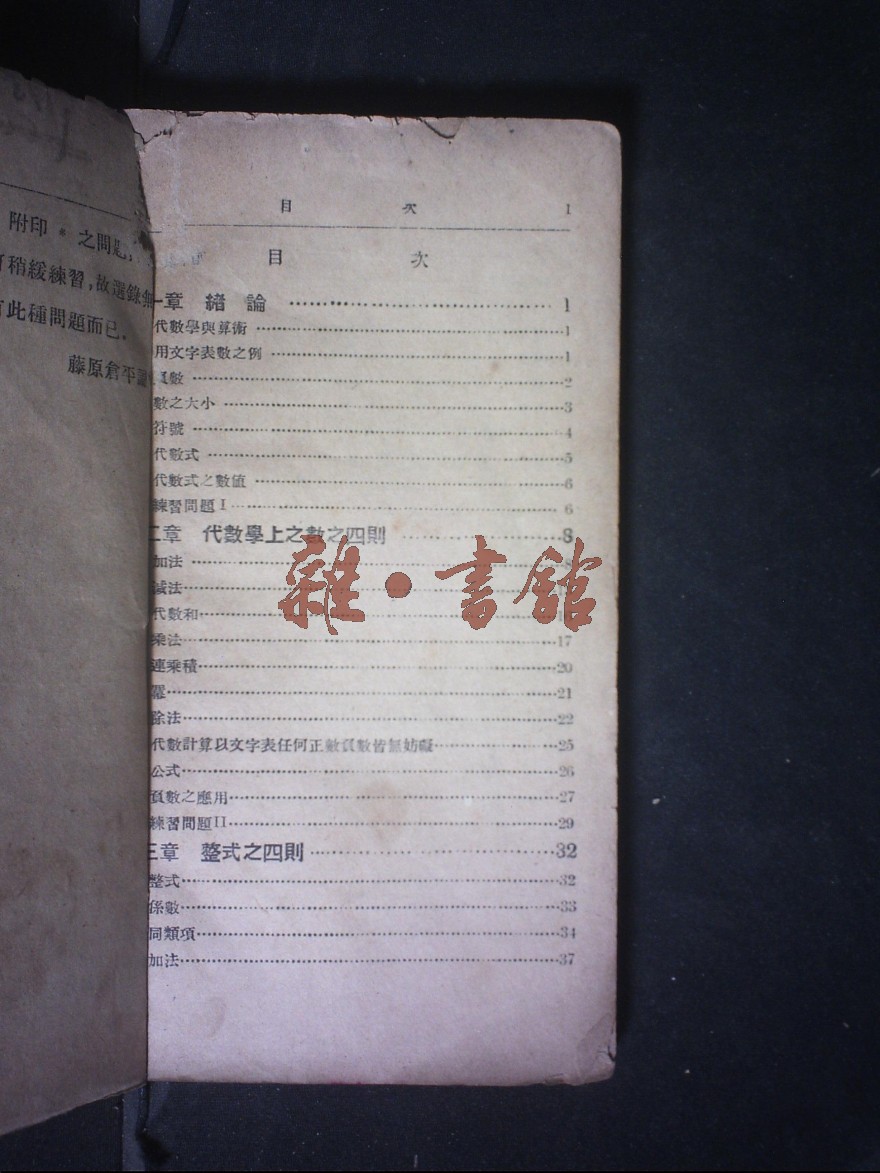 附印 * 之問
稍緩練習,故選錄
此種問題而已.
藤原倉平
目 次 1
目 次
一章 緒論 1
代數學與算術 1
用文字表數之例 1
負數 2
數之大小 3
符號 4
代數式 5
代數式之數值 6
練習問題 I 6
二章 代數學上之數之四則 8
加法
減法
代數和
乘法 17
連乘積 20
羃 21
除法 22
代數計算以文字表任何正數負數皆無妨礙 25
公式 26
負數之應用 27
練習問題II 29
三章 整式之四則 32
整式 32
係數 33
同類項 34
加法 37
雜•書館